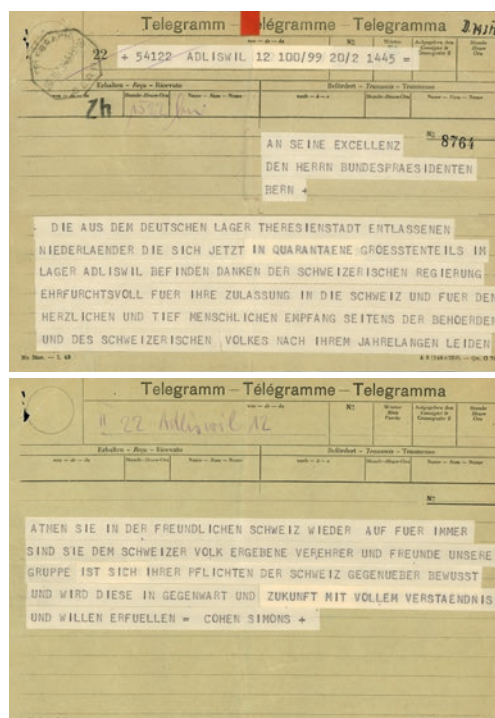 Telegramm — Télégramme — Telegramma
von — de — da
Nº
22
+ 54122 ADLISWIL 12 100/99 20/2 1445 =
Erhalten – Reçu – Ricevuto
Befördert – Transmis – Trasmesso
von – de – da
Stunde-Heure-Ora
Name – Nom – Nome
nach – à – a
Stunde-Heure-Ora
Name – Nom – Nome
Zh
Nº 8764
AN SEINE EXCELLENZ
DEN HERRN BUNDESPRAESIDENTEN
BERN +
DIE AUS DEM DEUTSCHEN LAGER THERESIENSTADT ENTLASSENEN
NIEDERLAENDER DIE SICH JETZT IN QUARANTAENE GROESSTENTEILS IM
LAGER ADLISWIL BEFINDEN DANKEN DER SCHWEIZERISCHEN REGIERUNG
EHRFURCHTSVOLL FUER IHRE ZULASSUNG IN DIE SCHWEIZ UND FUER DEN
HERZLICHEN UND TIEF MENSCHLICHEN EMPFANG SEITENS DER BEHOERDEN
UND DES SCHWEIZERISCHEN VOLKES NACH IHREM JAHRELANGEN LEIDEN
Telegramm — Télégramme — Telegramma
von — de — da
Nº
II 22 Adliswil 12
Erhalten – Reçu – Ricevuto
Befördert – Transmis – Trasmesso
von – de – da
Stunde-Heure-Ora
Name – Nom – Nome
nach – à – a
Stunde-Heure-Ora
Name – Nom – Nome
Nº
ATMEN SIE IN DER FREUNDLICHEN SCHWEIZ WIEDER AUF FUER IMMER
SIND SIE DEM SCHWEIZER VOLK ERGEBENE VEREHRER UND FREUNDE UNSERE
GRUPPE IST SICH IHRER PFLICHTEN DER SCHWEIZ GEGENUEBER BEWUSST
UND WIRD DIESE IN GEGENWART UND ZUKUNFT MIT VOLLEM VERSTAENDNIS
UND WILLEN ERFUELLEN = COHEN SIMONS +